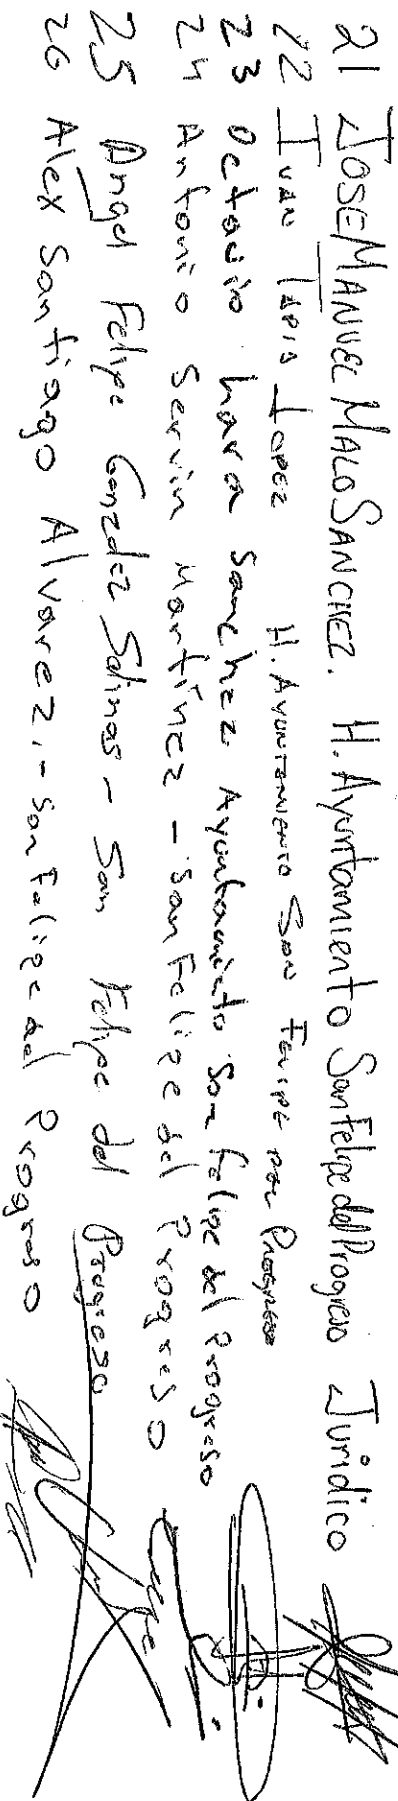 21 JOSE MANUEL MALO SANCHEZ. H. Ayuntamiento San Felipe del Progreso Jurídico
22 IVAN TAPIA LOPEZ H. AYUNTAMIENTO SAN FELIPE DEL PROGRESO
23 Octavio Lara Sanchez Ayuntamiento San Felipe del Progreso
24 Antonio Servin Martínez - San Felipe del Progreso
25 Angel Felipe Gonzalez Salinas - San Felipe del Progreso
26 Alex Santiago Alvarez.- San Felipe del Progreso